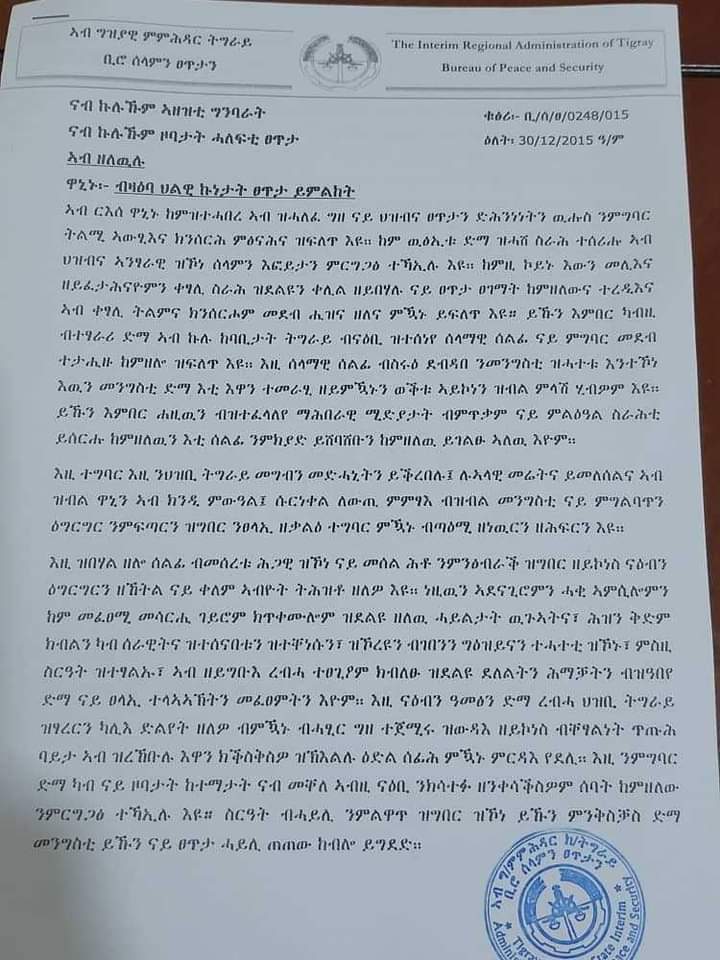 ኣብ ግዝያዊ ምምሕዳር ትግራይ
ቢሮ ሰላምን ፀጥታን
The Interim Regional Administration of Tigray
Bureau of Peace and Security
ናብ ኩሉኹም ኣዘዝቲ ግንባራት
ናብ ኩሉኹም ዞባታት ሓለፍቲ ፀጥታ
ኣብ ዘለዉሉ
ቁፅሪ፡- ቢ/ሰ/ፀ/0248/015
ዕለት፡ 30/12/2015 ዓ/ም
ዋኒኑ፡- ብዛዕባ ህልዊ ኩነታት ፀጥታ ይምልከት
ኣብ ርእሰ ዋኒኑ ከምዝተሓበረ ኣብ ዝሓለፈ ግዘ ናይ ህዝብና ፀጥታን ድሕንነትን ዉሑስ ንምግባር
ትልሚ ኣውፂእና ክንሰርሕ ምፅናሕና ዝፍለጥ እዩ። ከም ዉፅኢቱ ድማ ዝሓሸ ስራሕ ተሰሪሑ ኣብ
ህዝብና ኣንፃራዊ ዝኾነ ሰላምን እፎይታን ምርግጋፅ ተኻኢሉ እዩ። ከምዚ ኮይኑ እውን መሊእና
ዘይፈታሕናዮምን ቀፃሊ ስራሕ ዝደልዩን ቀሊል ዘይበሃሉ ናይ ፀጥታ ፀገማት ከምዘለውና ተረዲእና
ኣብ ቀፃሊ ትልምና ክንሰርሖም መደብ ሒዝና ዘለና ምዃኑ ይፍለጥ እዩ። ይኹን እምበር ካብዚ
ብተፃራሪ ድማ ኣብ ኩሉ ከባቢታት ትግራይ ብናዕቢ ዝተሰነየ ሰላማዊ ሰልፊ ናይ ምግባር መደብ
ተታሒዙ ከምዘሎ ዝፍለጥ እዩ። እዚ ሰላማዊ ሰልፊ ብስሩዕ ደብዳበ ንመንግስቲ ዝሓተቱ እንተኾነ
እዉን መንግስቲ ድማ እቲ እዋን ተመራፂ ዘይምዃኑን ወቅቱ ኣይኮነን ዝብል ምላሽ ሂብዎም እዩ።
ይኹን እምበር ሐዚዉን ብዝተፈላለየ ማሕበራዊ ሚድያታት ብምጥቃም ናይ ምልዕዓል ስራሕቲ
ይሰርሑ ከምዘለዉን እቲ ሰልፊ ንምክያድ ይሸባሸቡን ከምዘለዉ ይገልፁ ኣለዉ እዮም።
እዚ ተግባር እዚ ንህዝቢ ትግራይ መግብን መድሓኒትን ይቕረበሉ፤ ሉኣላዊ መሬትና ይመለሰልና ኣብ
ዝብል ዋኒን ኣብ ክንዲ ምውዓል፤ ሱርነቀል ለውጢ ምምፃእ ብዝብል መንግስቲ ናይ ምግልባጥን
ዕግርግር ንምፍጣርን ዝግበር ንፀላኢ ዘቃልዕ ተግባር ምዃኑ ብጣዕሚ ዘነዉርን ዘሕፍርን እዩ።
እዚ ዝበሃል ዘሎ ሰልፊ ብመሰረቱ ሕጋዊ ዝኾነ ናይ መሰል ሕቶ ንምንፅብራቕ ዝግበር ዘይኮነስ ናዕብን
ዕግርግርን ዘኸትል ናይ ቀለም ኣብዮት ትሕዝቶ ዘለዎ እዩ። ነዚዉን ኣደናጊሮምን ሓቂ ኣምሲሎምን
ከም መፈፀሚ መሳርሒ ገይሮም ክጥቀሙሎም ዝደልዩ ዘለዉ ሓይልታት ዉጉኣትና፣ ሕዝን ቅድም
ክብልን ካብ ሰራዊትና ዝተሰናበቱን ዝተቐነሱን፣ ዝኾረዩን ብገበንን ግዕዝይናን ተሓተቲ ዝኾኑ፣ ምስዚ
ስርዓት ዝተፃልኡ፣ ኣብ ዘይግቡእ ረብሓ ተፀጊዖም ክብለፁ ዝደልዩ ደለልትን ሕማቓትን ብዝዓበየ
ድማ ናይ ፀላኢ ተላኣኣኽትን መፈፀምትን እዮም። እዚ ናዕብን ዓመፅን ድማ ረብሓ ህዝቢ ትግራይ
ዝፃረርን ካሊእ ድልየት ዘለዎ ብምዃኑ ብሓፂር ግዘ ተጀሚሩ ዝውዳእ ዘይኮነስ ብቐፃልነት ጥጡሕ
ባይታ ኣብ ዝረኸቡሉ እዋን ክቕስቅስዎ ዝኽእልሉ ዕድል ሰፊሕ ምዃኑ ምርዳእ የደሊ። እዚ ንምግባር
ድማ ካብ ናይ ዞባታት ከተማታት ናብ መቐለ ኣብዚ ናዕቢ ንክሳተፉ ዘንቀሳቕስዎም ሰባት ከምዘለው
ንምርግጋፅ ተኻኢሉ እዩ። ስርዓት ብሓይሊ ንምልዋጥ ዝግበር ዝኾነ ይኹን ምንቅስቓስ ድማ
መንግስቲ ይኹን ናይ ፀጥታ ሓይሊ ጠጠው ከብሎ ይግደድ።
ኣብ ግ/ምምሕዳር ክ/ትግራይ
ቢሮ ሰላምን ፀጥታን